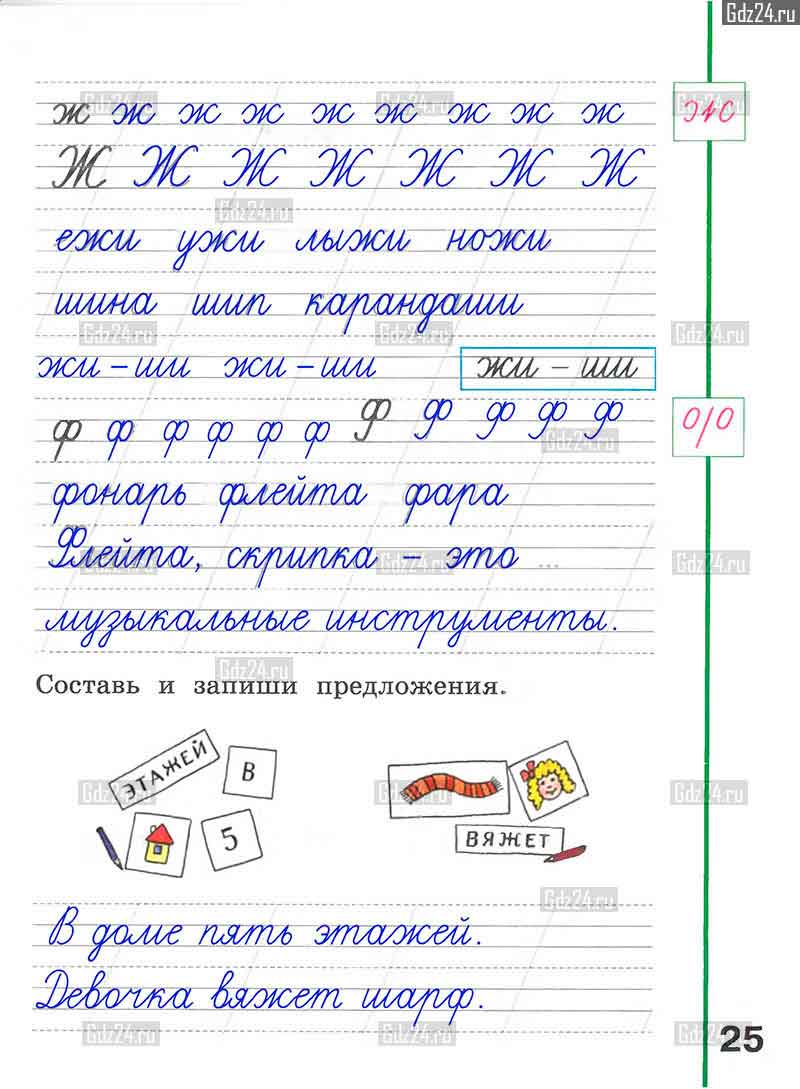 Gdz24.ru
ж ж ж ж ж ж ж ж ж
Ж Ж Ж Ж Ж Ж Ж
ежи ужи лыжи ножи
шина шип карандаши
жи – ши жи – ши жи – ши
ф ф ф ф ф ф Ф Ф Ф Ф Ф
фонарь флейта фара
Флейта, скрипка – это ...
музыкальные инструменты.
Составь и запиши предложения.
ЭТАЖЕЙ В
5
ВЯЖЕТ
В доме пять этажей.
Девочка вяжет шарф.
25